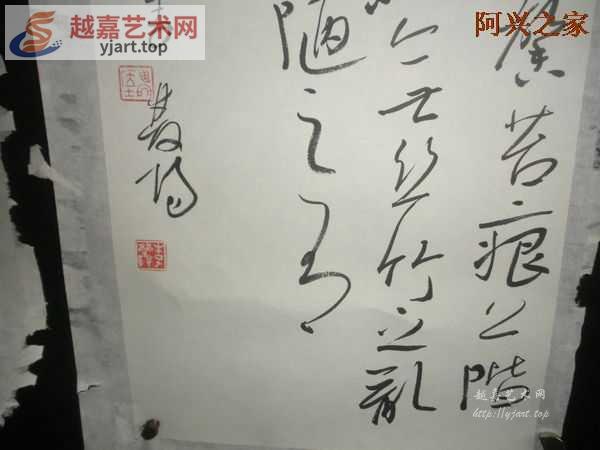 越嘉艺术网
yjart.top
阿兴之家
馨苔痕上階
无丝竹之亂
陋之有
越嘉艺术网
http://yjart.top